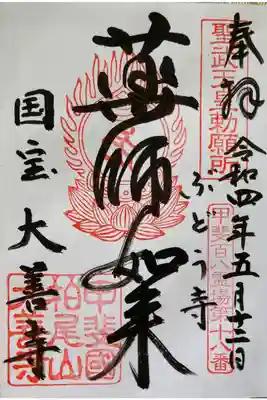 奉拝
聖武天皇勅願所
令和四年五月十二日
ぶどう寺
甲斐百八霊場第十八番
薬師如来
国宝大善寺
甲斐國
柏尾山
大善寺